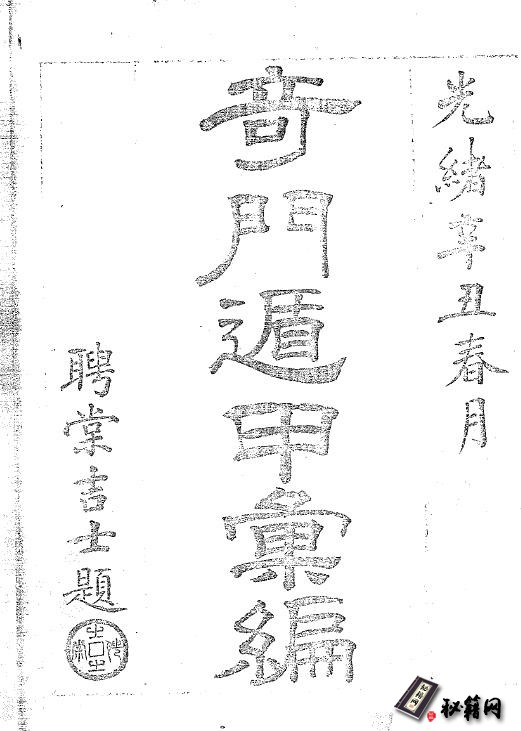 光緒辛丑春月
奇門遁甲彙編
聘棠吉士題
秘籍网